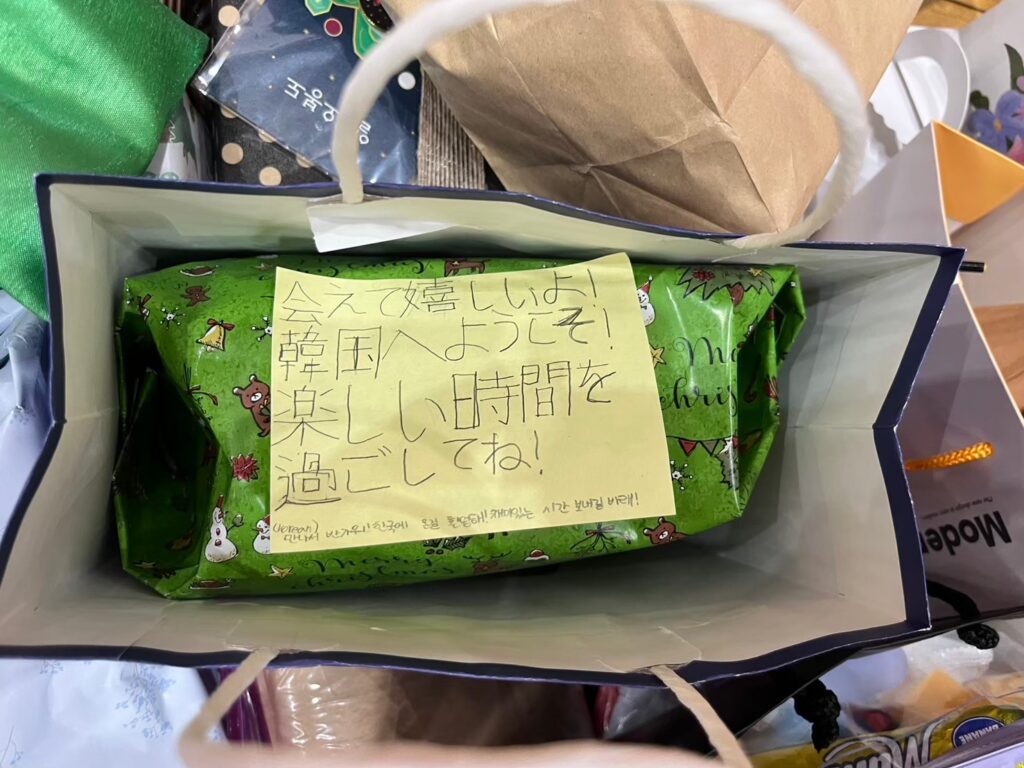 국중박
会えて嬉しいよ!
韓国へようこそ!
楽しい時間を
過ごしてね!
(Korean)
만나서 반가워! 한국에 온걸 환영해! 재미있는 시간 보내길 바래!
Merry
Christmas
Merry
Christmas
Mode
BANANE